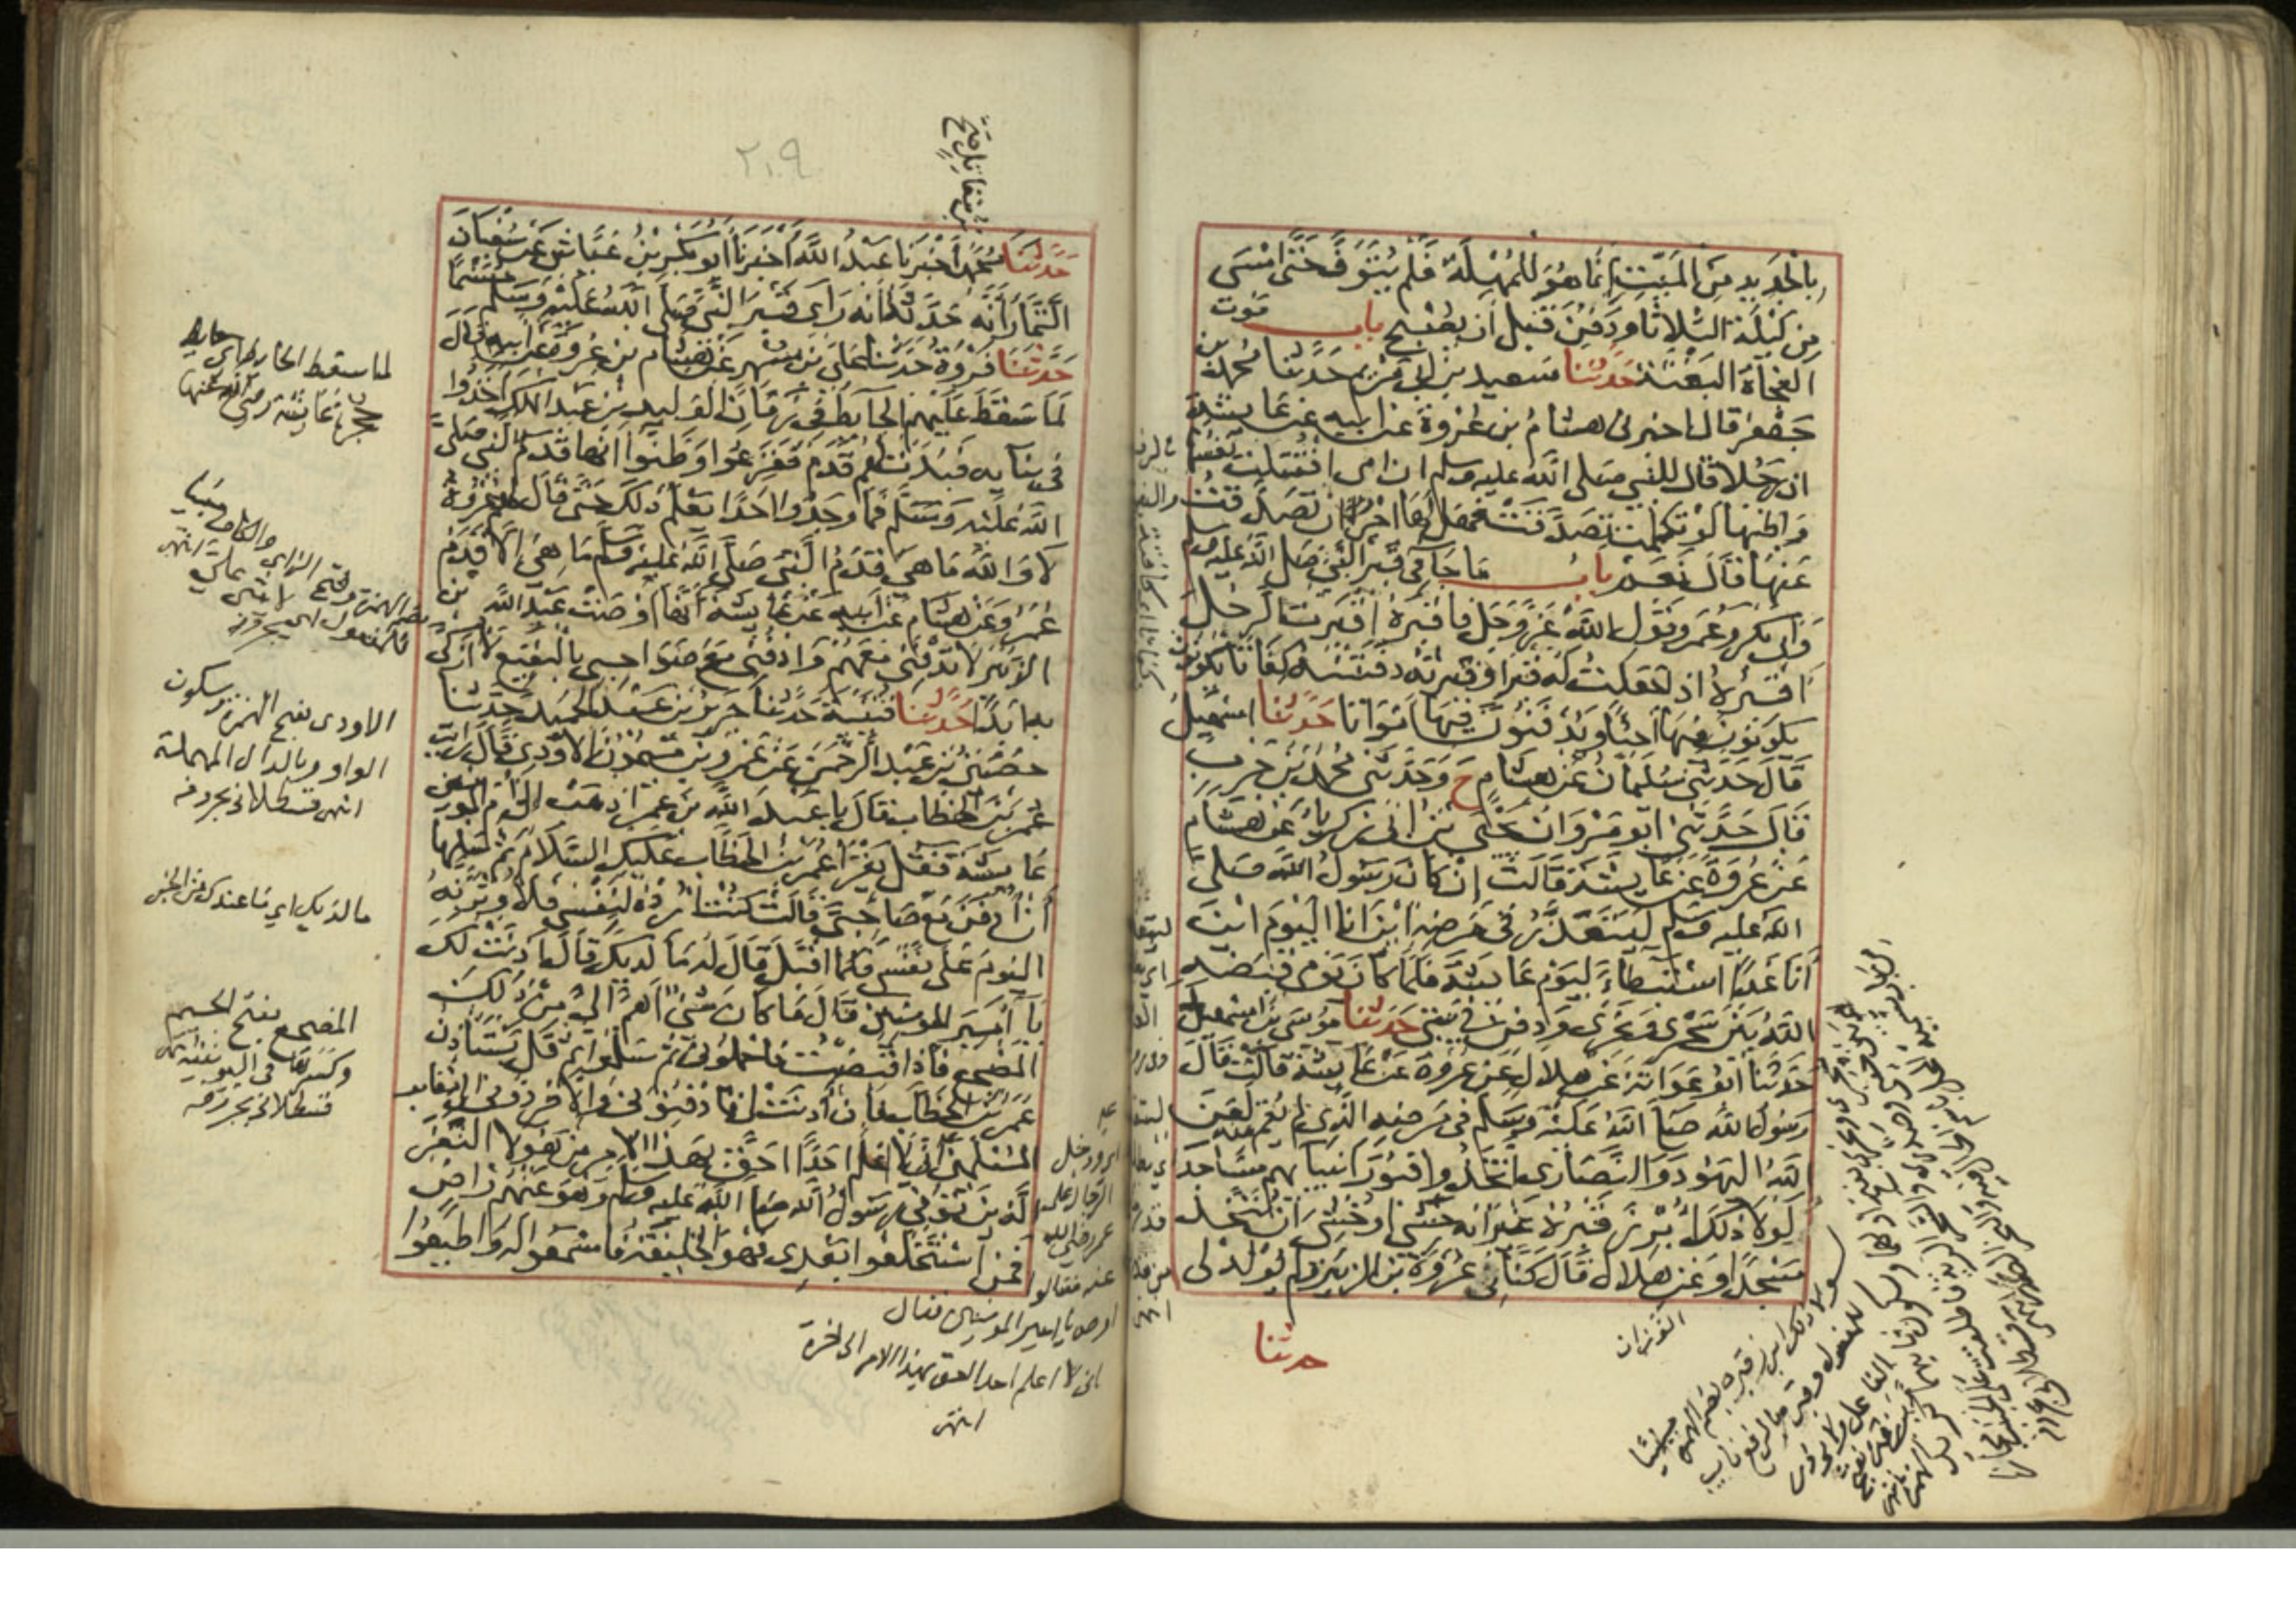 بِالْجَدِيدِ مِنَ المَيِّتِ إِنَّمَا هُوَ لِلْمُهْلَةِ فَلَمْ يُتَوَفَّ حَتَّى امْسَى
مِن لَيْلَةِ الثلاثا ودفن قبل ان يصبح باب موت
الفجاة البغتة حدثنا سعيد بن ابي مريم حدثنا محمد بن
جعفر قال اخبرني هشام بن عروة عن ابيه عن عايشة
ان رجلا قال للنبي صلى الله عليه وسلم ان امي افتلتت نفسها
واظنها لو تكلمت تصدقت فهل لها اجر ان تصدقت
عنها قال نعم باب ما جا في قبر النبي صلى الله عليه وسلم
وابي بكر وعمر وقول الله عز وجل فاقبره اقبرت الرجل
اقبره اذا جعلت له قبرا وقبرته دفنته كفاتا يكونون
يكونون فيها احيا ويدفنون فيها امواتا حدثنا اسمعيل
قال حدثني سليمان عن هشام ح وحدثني محمد بن حرب
قال حدثني ابو مروان يحيى بن ابي زكريا عن هشام
عن عروة عن عايشة قالت ان كان رسول الله صلى
الله عليه وسلم ليتعذر في مرضه اين انا اليوم اين
انا غدا استبطاء ليوم عايشة فلما كان يومي قبضه
الله بين سحري ونحري ودفن في بيتي حدثنا موسى بن اسمعيل
حدثنا ابو عوانة عن هلال عن عروة عن عايشة قالت قال
رسول الله صلى الله عليه وسلم في مرضه الذي لم يقم منه لعن
الله اليهود والنصارى اتخذوا قبور انبيايهم مساجد
لولا ذلك ابرز قبره غير انه خشي او خشي ان يتخذ
مسجدا وعن هلال قال كناني عروة بن الزبير ولم يولد لي
حدثنا
٢٠٩
بن مقاتل صح
حدثنا محمد اخبرنا عبد الله اخبرنا ابو بكر بن عياش عن سفيان
التمار انه حدثه انه راى قبر النبي صلى الله عليه وسلم مسنما
حدثنا فروة حدثنا علي بن مسهر عن هشام بن عروة عن ابيه قال
لما سقط عليهم الحايط في زمان الوليد بن عبد الملك اخذوا
في بنايه فبدت لهم قدم ففزعوا وظنوا انها قدم النبي صلى
الله عليه وسلم فما وجدوا احدا يعلم ذلك حتى قال لهم عروة
لا والله ما هي قدم النبي صلى الله عليه وسلم ما هي الا قدم
عمر وعن هشام عن ابيه عن عايشة انها اوصت عبد الله بن
الزبير لا تدفني معهم وادفني مع صواحبي بالبقيع لا ازكى
به ابدا حدثنا قتيبة حدثنا جرير بن عبد الحميد حدثنا
حصين بن عبد الرحمن عن عمرو بن ميمون الاودي قال رايت
عمر بن الخطاب قال يا عبد الله بن عمر اذهب الى ام المومنين
عايشة فقل يقرا عمر بن الخطاب عليك السلام ثم سلها
ان ادفن مع صاحبي قالت كنت اريده لنفسي فلاوثرنه
اليوم على نفسي فلما اقبل قال له ما لديك قال اذنت لك
يا امير المومنين قال ما كان شي اهم الي من ذلك
المضجع فاذا قبضت فاحملوني ثم سلموا ثم قل يستاذن
عمر بن الخطاب فان اذنت لي فادفنوني والا فردوني الى مقابر
المسلمين اني لا اعلم احدا احق بهذا الامر من هولا النفر
الذين توفي رسول الله صلى الله عليه وسلم وهو عنهم راض
فمن استخلفوا بعدي فهو الخليفة فاسمعوا له واطيعوا
لما سقط الحايط اي حايط
حجرة عايشة رضي الله عنها
الاودي بفتح الهمزة وسكون
الواو وبالدال المهملة
انتهى قسطلاني بحروفه
ما لديك اي ما عندك من الخبر
المضجع بفتح الجيم
وكسرها في اليونينية
قسطلاني بحروفه
ودخل
الرجال على
عمر رضي الله
عنه فقالوا
اوص يا امير المومنين فقال
اني لا اعلم احدا احق بهذا الامر الى اخره
انتهى